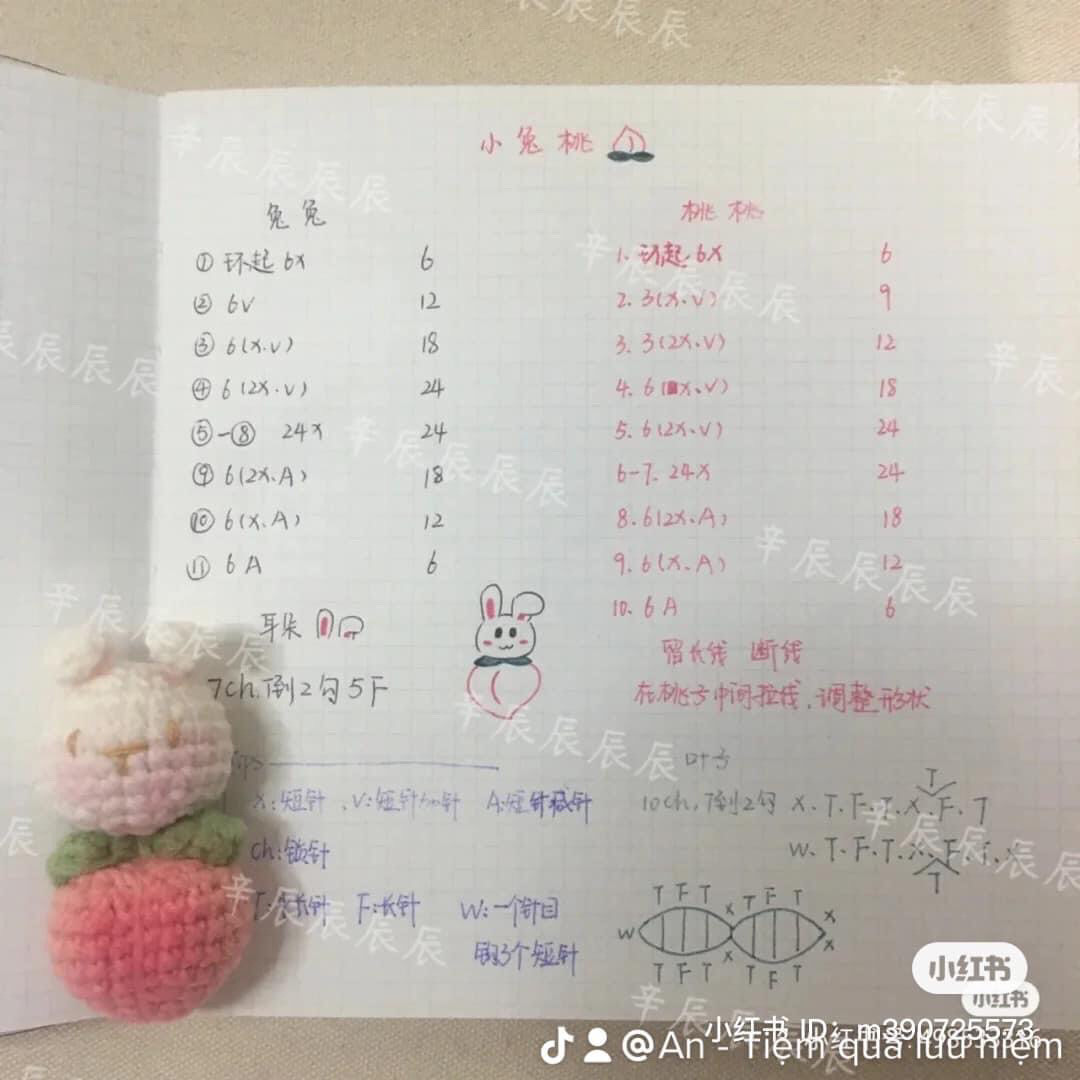 小兔桃
兔兔
① 环起 6X 6
② 6V 12
③ 6(X.V) 18
④ 6(2X.V) 24
⑤-⑧ 24X 24
⑨ 6(2X.A) 18
⑩ 6(X.A) 12
⑪ 6A 6
耳朵
7ch,倒2勾5F
桃桃
1. 环起 6X 6
2. 3(X.V) 9
3. 3(2X.V) 12
4. 6(X.V) 18
5. 6(2X.V) 24
6-7. 24X 24
8. 6(2X.A) 18
9. 6(X.A) 12
10. 6A 6
留长线 断线
在桃子中间拉线,调整形状
Tips
X:短针、V:短针加针 A:短针减针
ch:锁针
T:中长针 F:长针 W:一个针目
钩3个短针
叶子
T
10ch,倒2勾 X.T.F.T.X.F.T
W.T.F.T.X.F.T.X
T
T F T X T F T X
W
T F T X T F T X
小红书
小红书
小红书 ID: m390725573
@An - Tiệm quà lưu niệm
辛辰辰辰辰